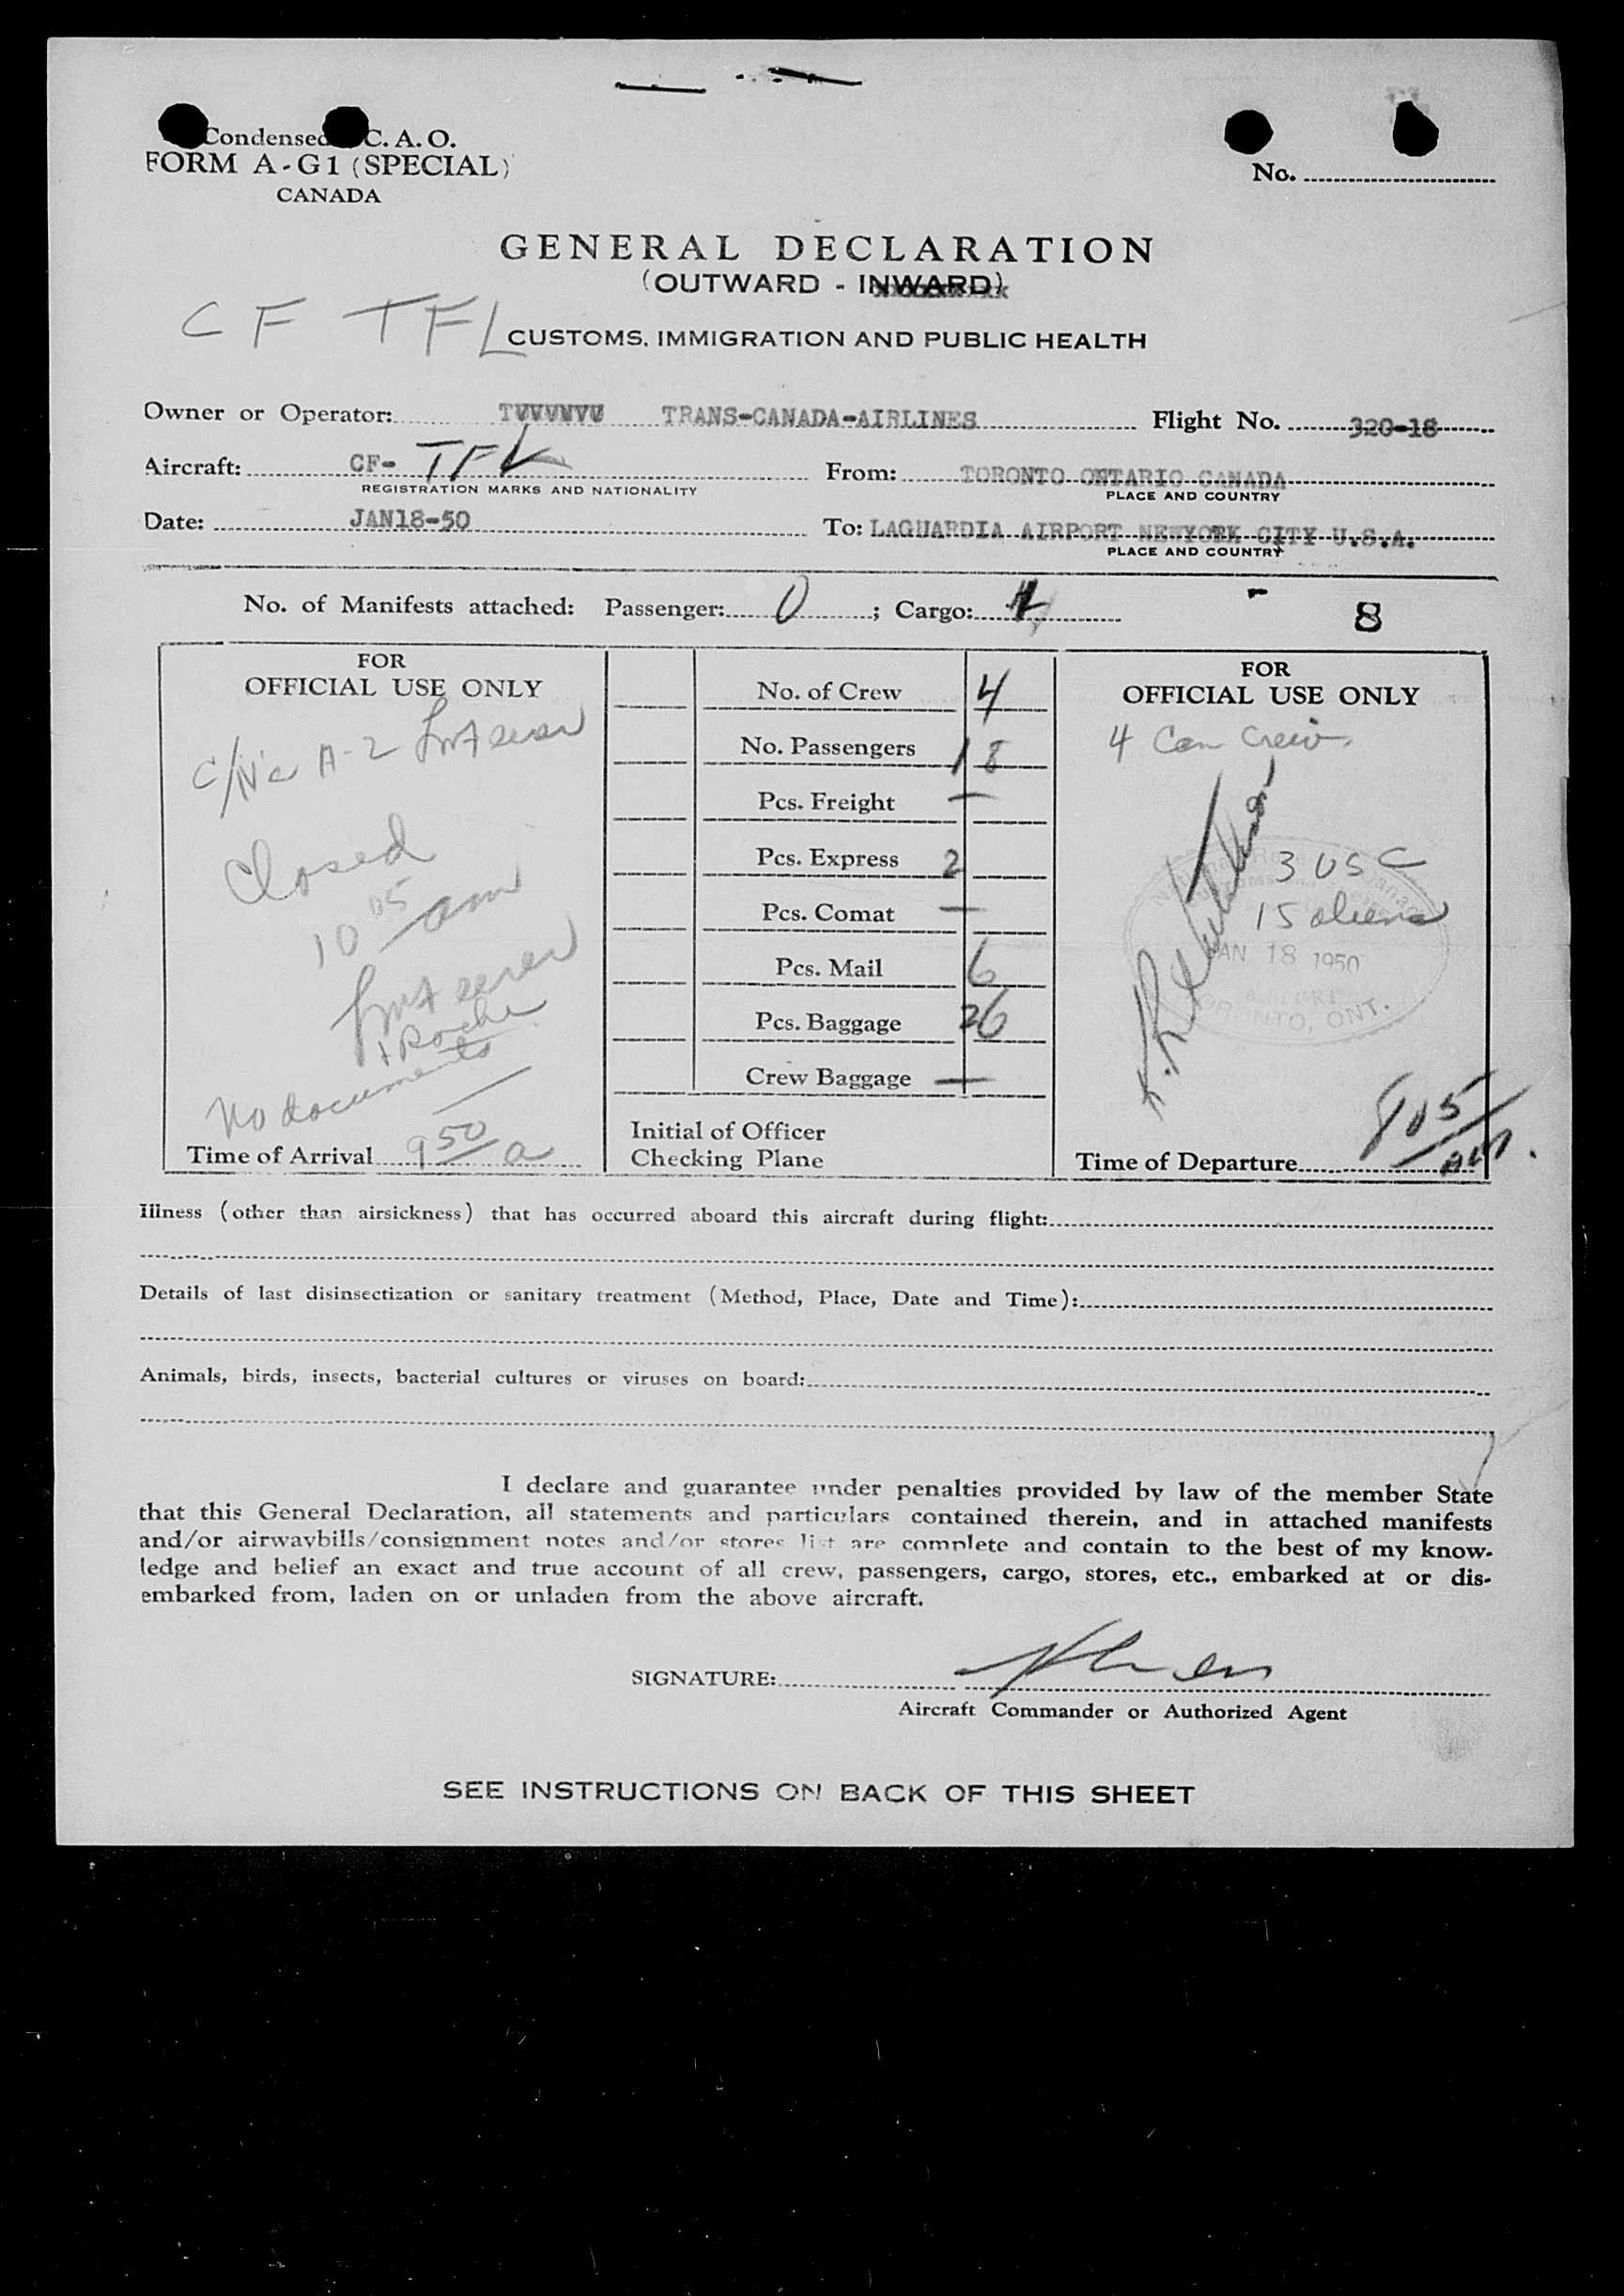 Condensed C. A. O.
FORM A-G1 (SPECIAL)
CANADA
No.
GENERAL DECLARATION
(OUTWARD - INWARD)
CF TFL
CUSTOMS, IMMIGRATION AND PUBLIC HEALTH
Owner or Operator: TRANS-CANADA-AIRLINES Flight No. 320-18
Aircraft: CF- TFL From: TORONTO ONTARIO CANADA
REGISTRATION MARKS AND NATIONALITY PLACE AND COUNTRY
Date: JAN18-50 To: LAGUARDIA AIRPORT NEWYORK CITY U.S.A.
PLACE AND COUNTRY
No. of Manifests attached: Passenger: 0 ; Cargo: - 8
FOR
OFFICIAL USE ONLY
A-2
Closed
10 05 am
+ Roche
No documents
Time of Arrival 9 50 a
No. of Crew 4
No. Passengers 18
Pcs. Freight —
Pcs. Express 2
Pcs. Comat —
Pcs. Mail 6
Pcs. Baggage 26
Crew Baggage —
Initial of Officer
Checking Plane
FOR
OFFICIAL USE ONLY
4 Can Crew
3 USC
15 aliens
JAN 18 1950
AIRPORT
TORONTO, ONT.
Time of Departure 805 AM.
Illness (other than airsickness) that has occurred aboard this aircraft during flight:
Details of last disinsectization or sanitary treatment (Method, Place, Date and Time):
Animals, birds, insects, bacterial cultures or viruses on board:
I declare and guarantee under penalties provided by law of the member State
that this General Declaration, all statements and particulars contained therein, and in attached manifests
and/or airwaybills/consignment notes and/or stores list are complete and contain to the best of my know-
ledge and belief an exact and true account of all crew, passengers, cargo, stores, etc., embarked at or dis-
embarked from, laden on or unladen from the above aircraft.
SIGNATURE:
Aircraft Commander or Authorized Agent
SEE INSTRUCTIONS ON BACK OF THIS SHEET